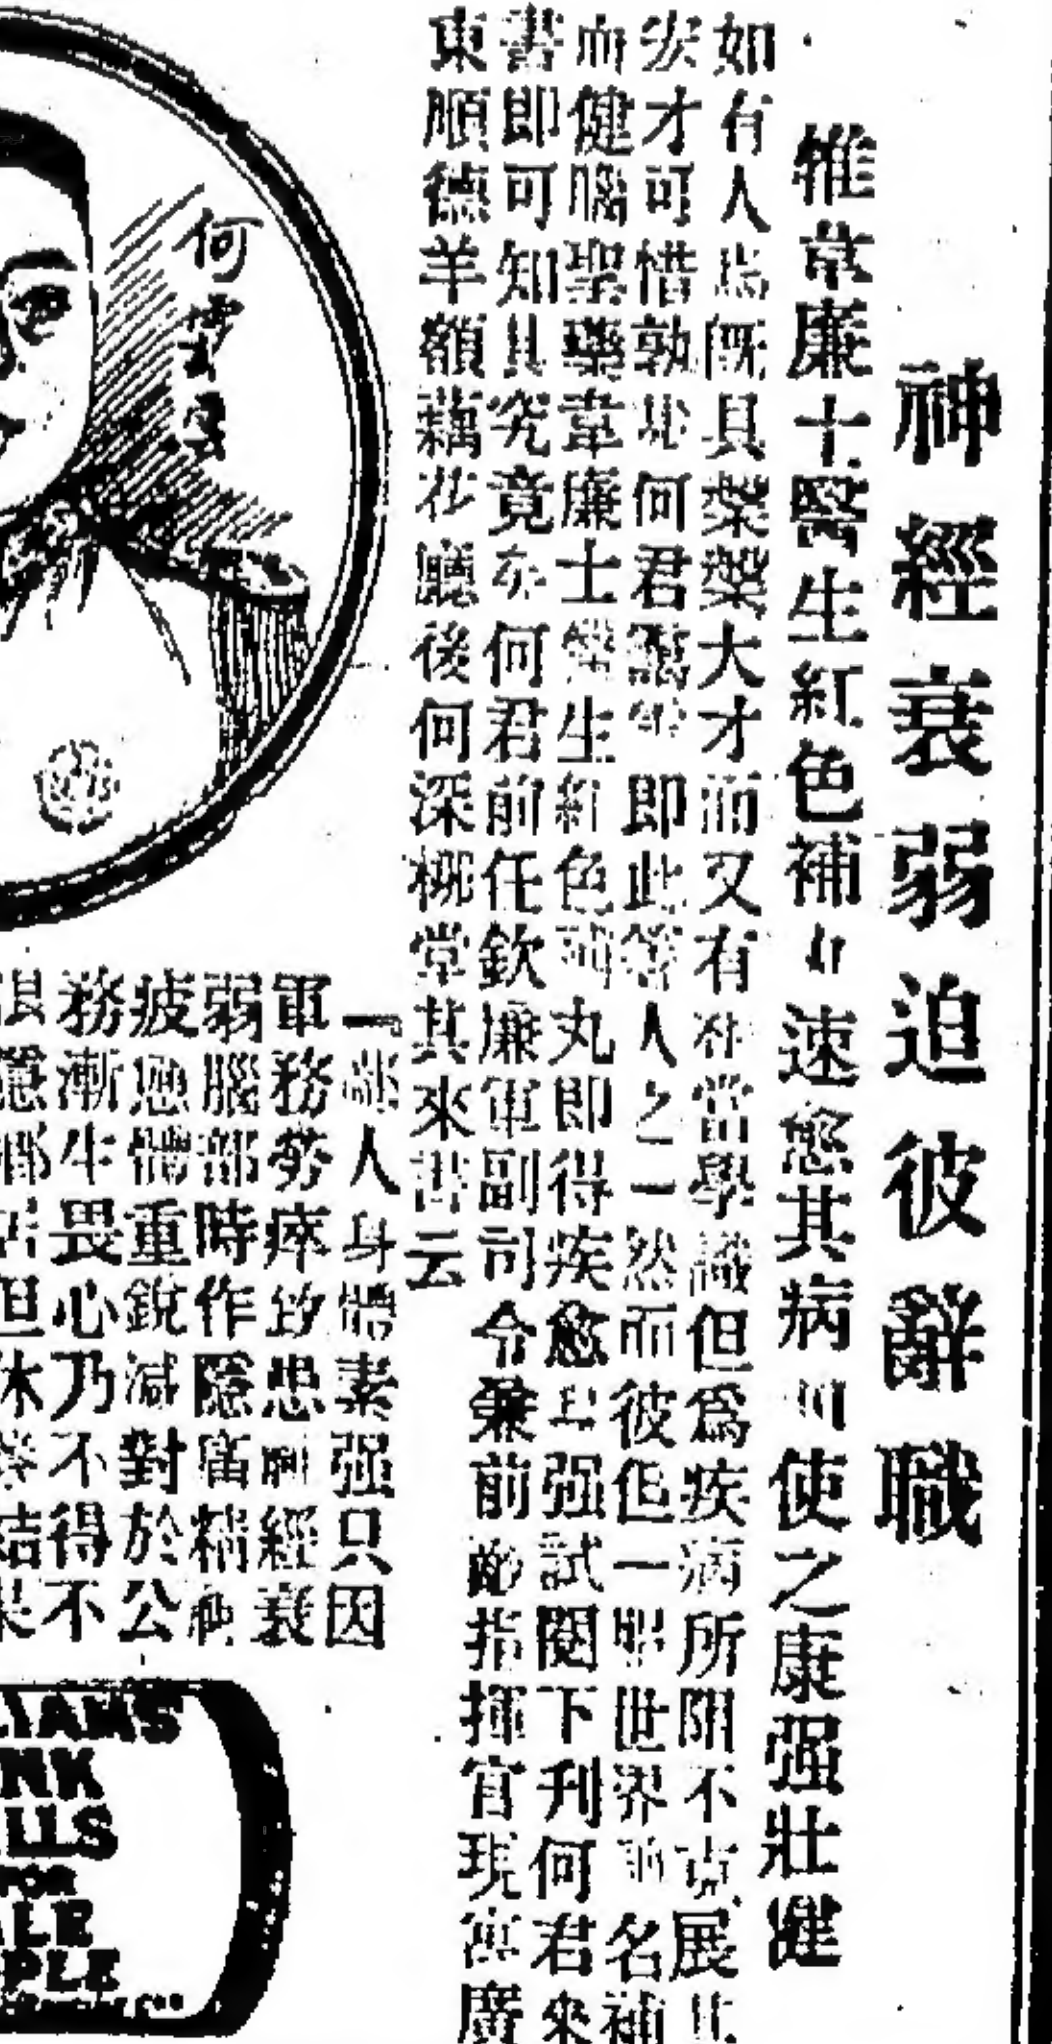 神經衰弱迫彼辭職
惟韋廉士醫生紅色補丸速愈其病且使之康强壯健
如有人焉既具槃槃大才而又有相當學識但爲疾病所阻不克展其
才可惜孰甚何君靄雲即此等人之一然而彼但一聞世界馳名補
血健腦聖藥韋廉士醫生紅色補丸即得疾愈身强試閱下刊何君來
書即可知其究竟矣何君前任欽廉軍副司令兼前敵指揮官現寓廣
東順德羊額藕花廳後何深柳堂其來書云
何雲
鄙人身體素强只因
軍務勞瘁致患神經衰
弱腦部時作隱痛精神
疲憊體重銳減對於公
務漸生畏心乃不得不
退隱鄉居但休養結果
LIAMS
NK
LLS
FOR
ALE
PLE